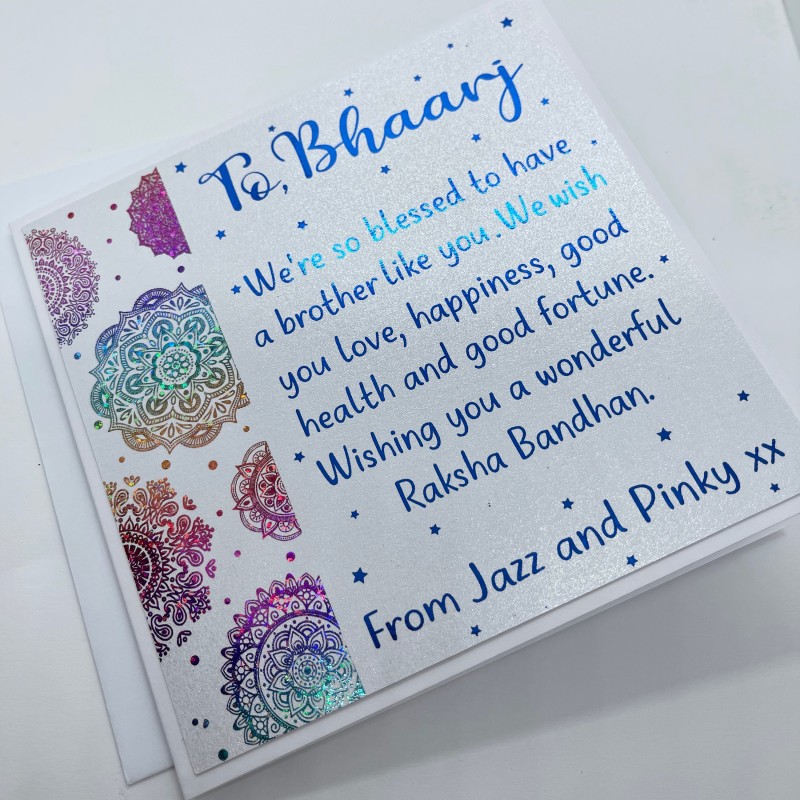 To, Bhaarj
We're so blessed to have
a brother like you. We wish
you love, happiness, good
health and good fortune.
Wishing you a wonderful
Raksha Bandhan.
From Jazz and Pinky xx